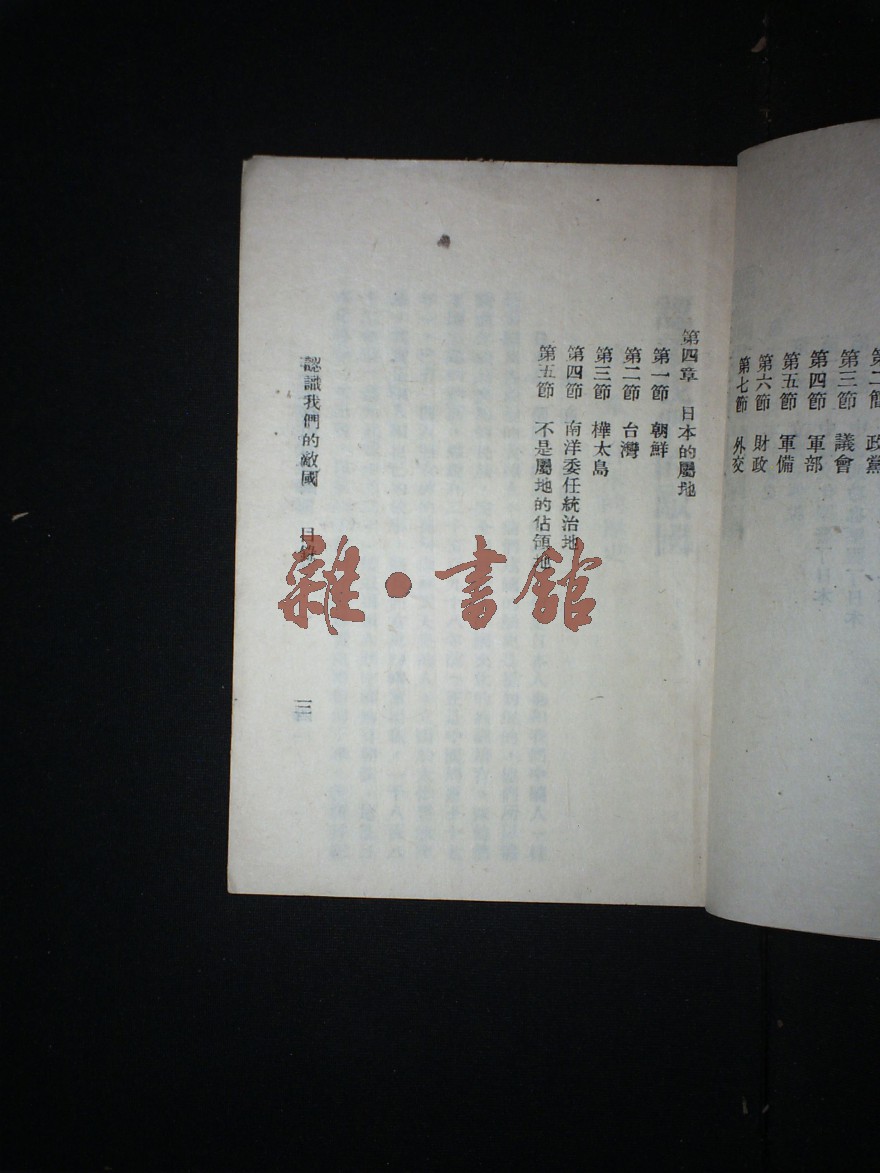 政黨
第三節 議會
第四節 軍部
第五節 軍備
第六節 財政
第七節 外交
第四章 日本的屬地
第一節 朝鮮
第二節 台灣
第三節 樺太島
第四節 南洋委任統治地
第五節 不是屬地的佔領地
認識我們的敵國 目錄
雜·書館